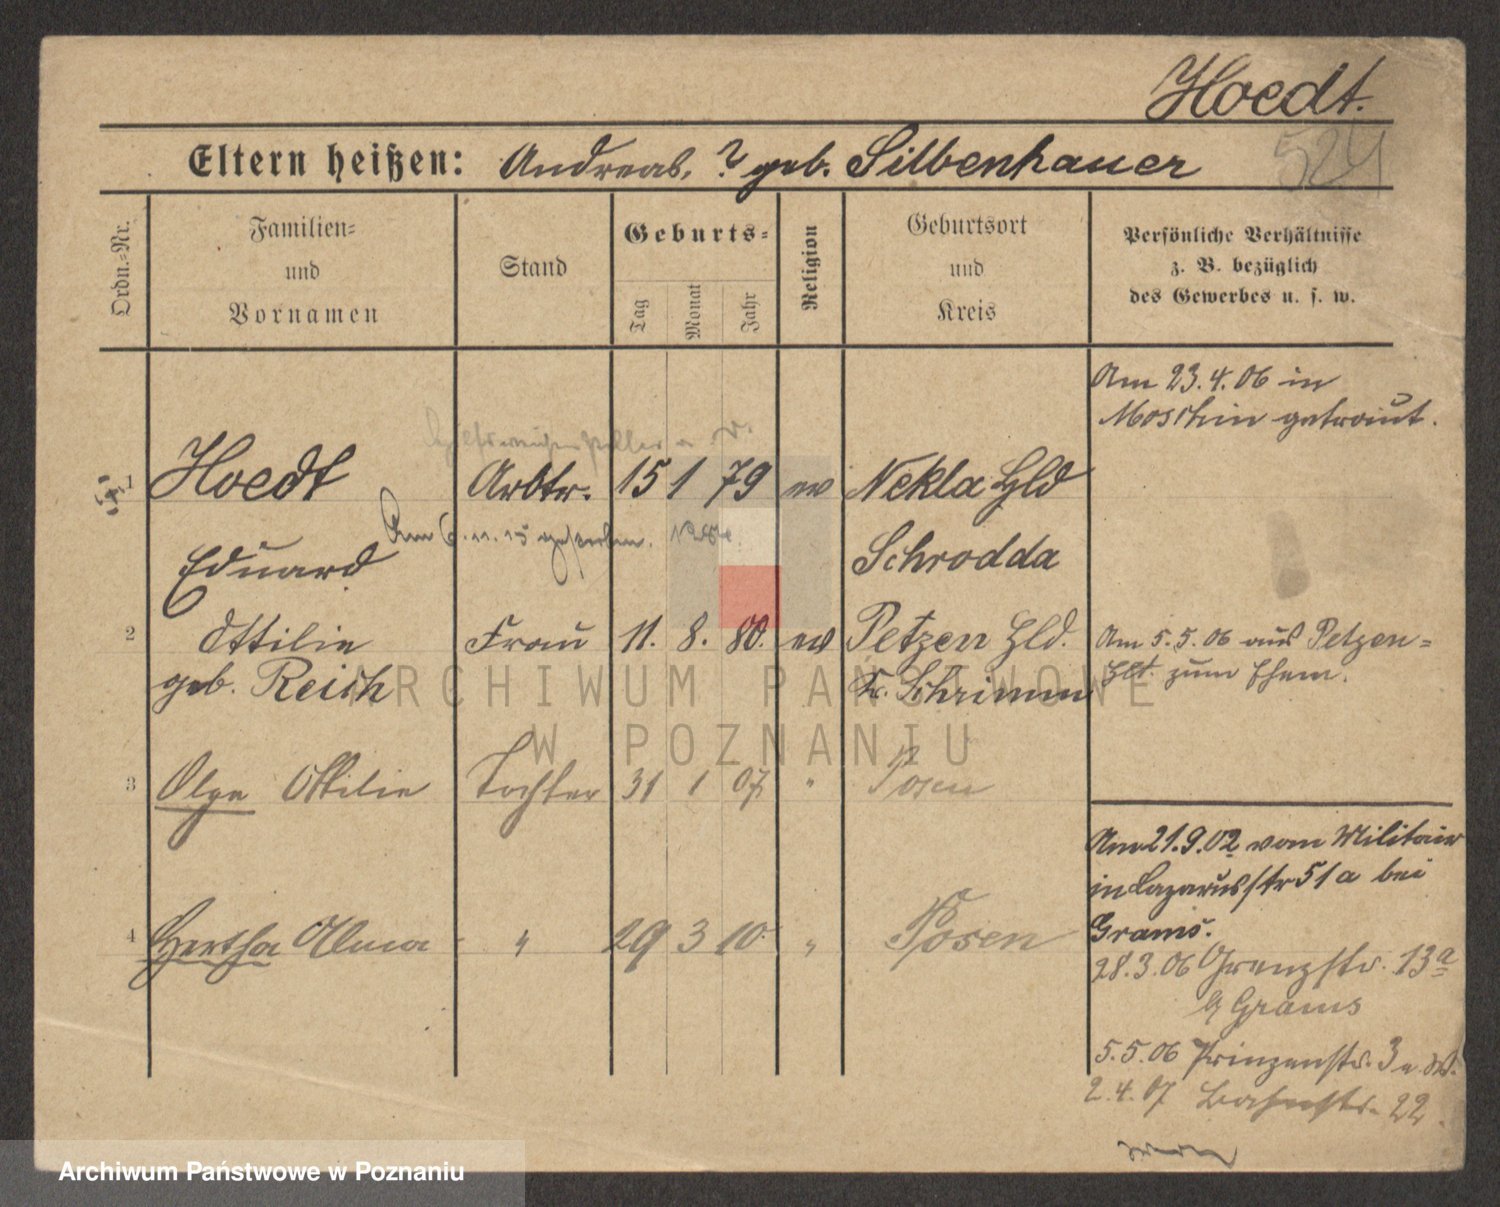 Hoedt.
524
Eltern heißen: Andreas, ? geb. Silbenhauer
Ordn.=Nr.
Familien=
und
Vornamen
Stand
Geburts=
Tag
Monat
Jahr
Religion
Geburtsort
und
Kreis
Persönliche Verhältnisse
z. B. bezüglich
des Gewerbes u. s. w.
Am 23.4.06 in
Moschin getraut.
1 Hoedt Arbtr. 15 1 79 ev Nekla Hld
Am 6.11.15 gestorben.
Eduard Schrodda
2 Ottilie Frau 11. 8. 80. ev Petzen Hld. Am 5.5.06 aus Petzen=
geb. Reich Kr. Schrimm Hlt. zum Ehem.
3 Olga Ottilie Tochter 31 1 07 " Posen
Am 21.9.02 vom Militair
in Lazarusstr 51a bei
4 Hertha Alma " 29 3 10. " Posen Grams.
28.3.06 Grenzstr. 13a
b Grams
5.5.06 Prinzenstr. 3 a. W.
2.4.07 Bahnstr. 22.
ARCHIWUM PAŃSTWOWE
W POZNANIU
Archiwum Państwowe w Poznaniu